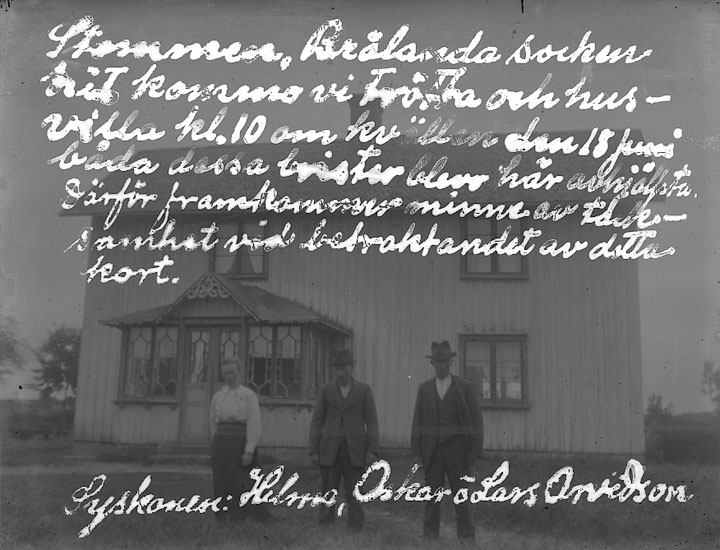 Stommen, Brålanda socken
hit kommo vi trötta och hus-
villa kl. 10 om kvällen den 18 juni
båda dessa brister blevo här avhjälpta.
Därför framkommer minne av tack-
samhet vid betraktandet av detta
kort.
Syskonen: Helma, Oskar o Lars Arvidson